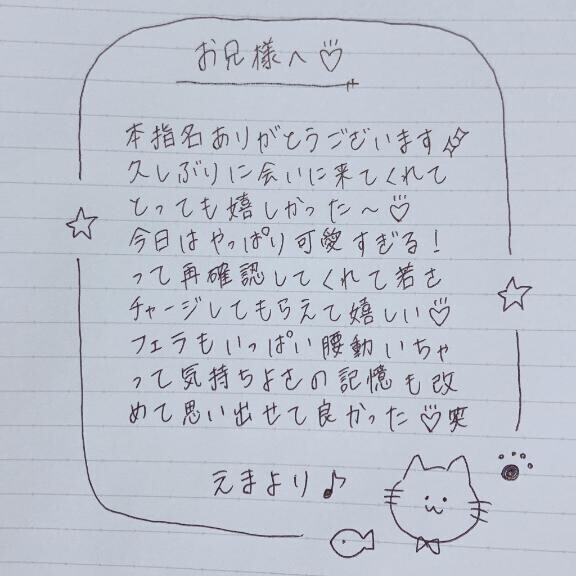 お兄様へ♡
本指名ありがとうございます
久しぶりに会いに来てくれて
とっても嬉しかった〜♡
今日はやっぱり可愛すぎる!
って再確認してくれて若さ
チャージしてもらえて嬉しい♡
フェラもいっぱい腰動いちゃ
って気持ちよさの記憶も改
めて思い出せて良かった♡笑
えまより♪